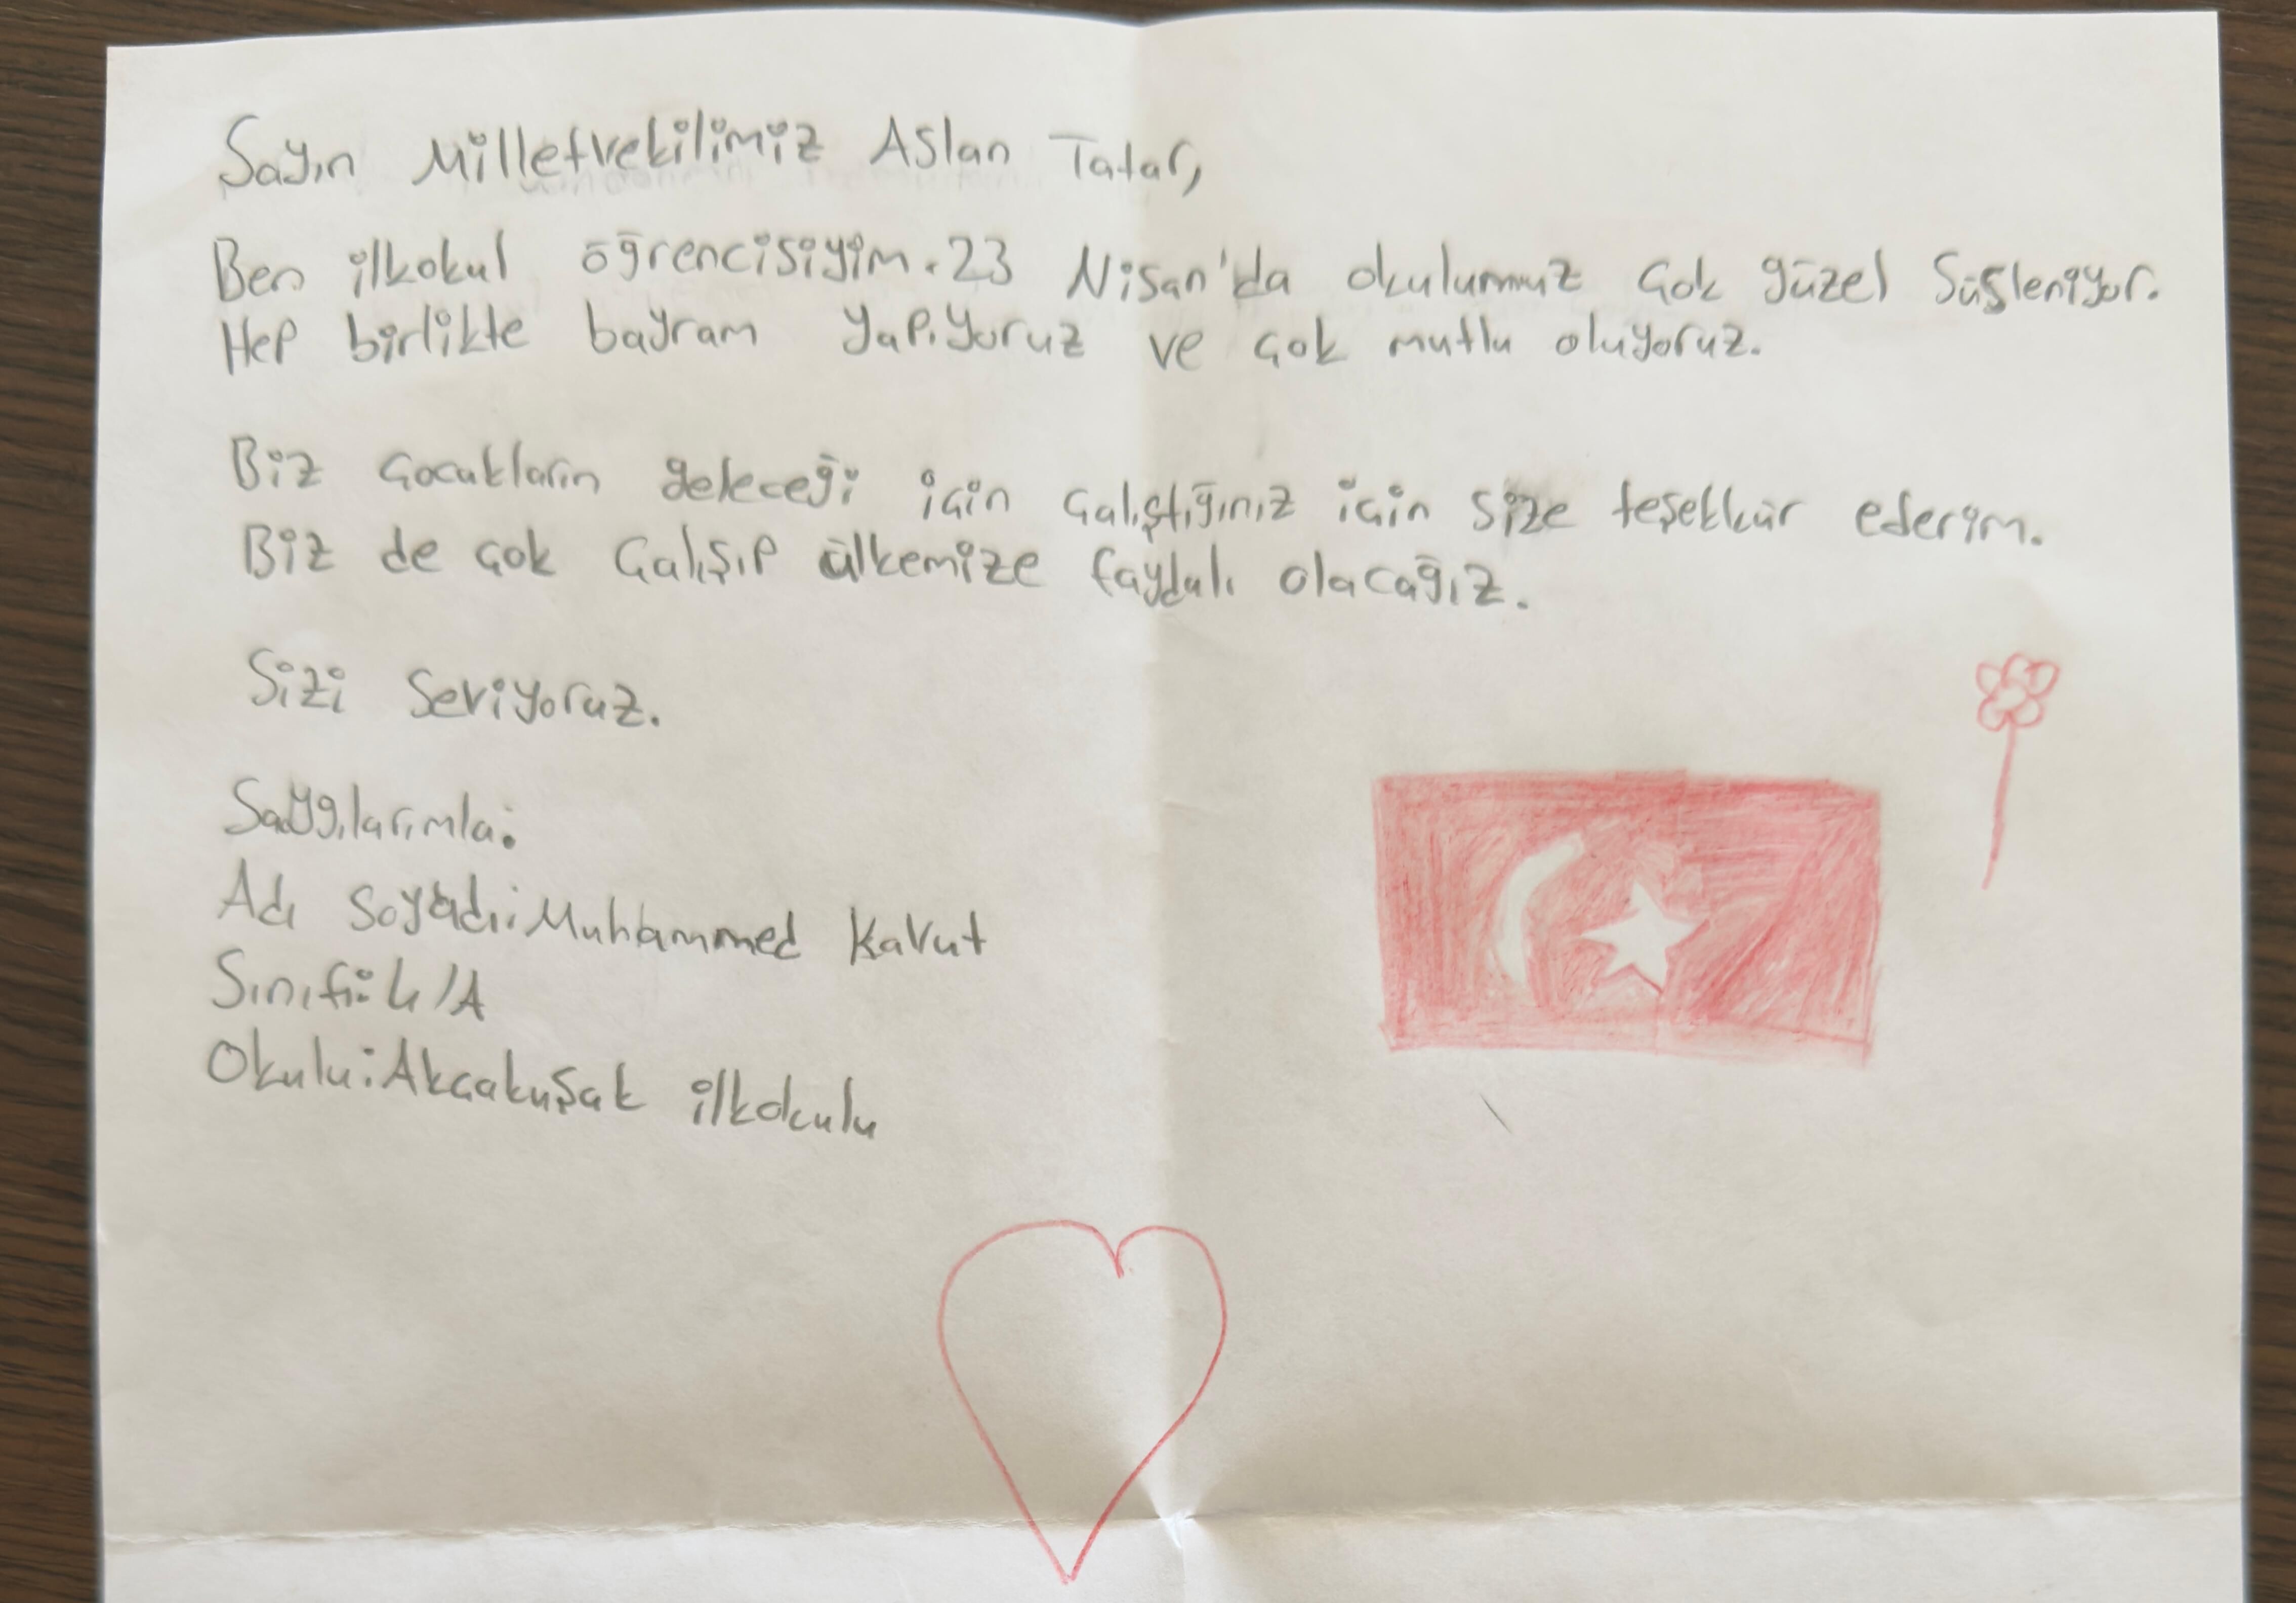 Sayın Milletvekilimiz Aslan Tatar,
Ben ilkokul öğrencisiyim. 23 Nisan'da okulumuz çok güzel süsleniyor.
Hep birlikte bayram yapıyoruz ve çok mutlu oluyoruz.
Biz çocukların geleceği için çalıştığınız için size teşekkür ederim.
Biz de çok çalışıp ülkemize faydalı olacağız.
Sizi seviyoruz.
Saygılarımla:
Adı soyadı: Muhammed Kavut
Sınıfı: 4/A
Okulu: Akçakuşak ilkokulu